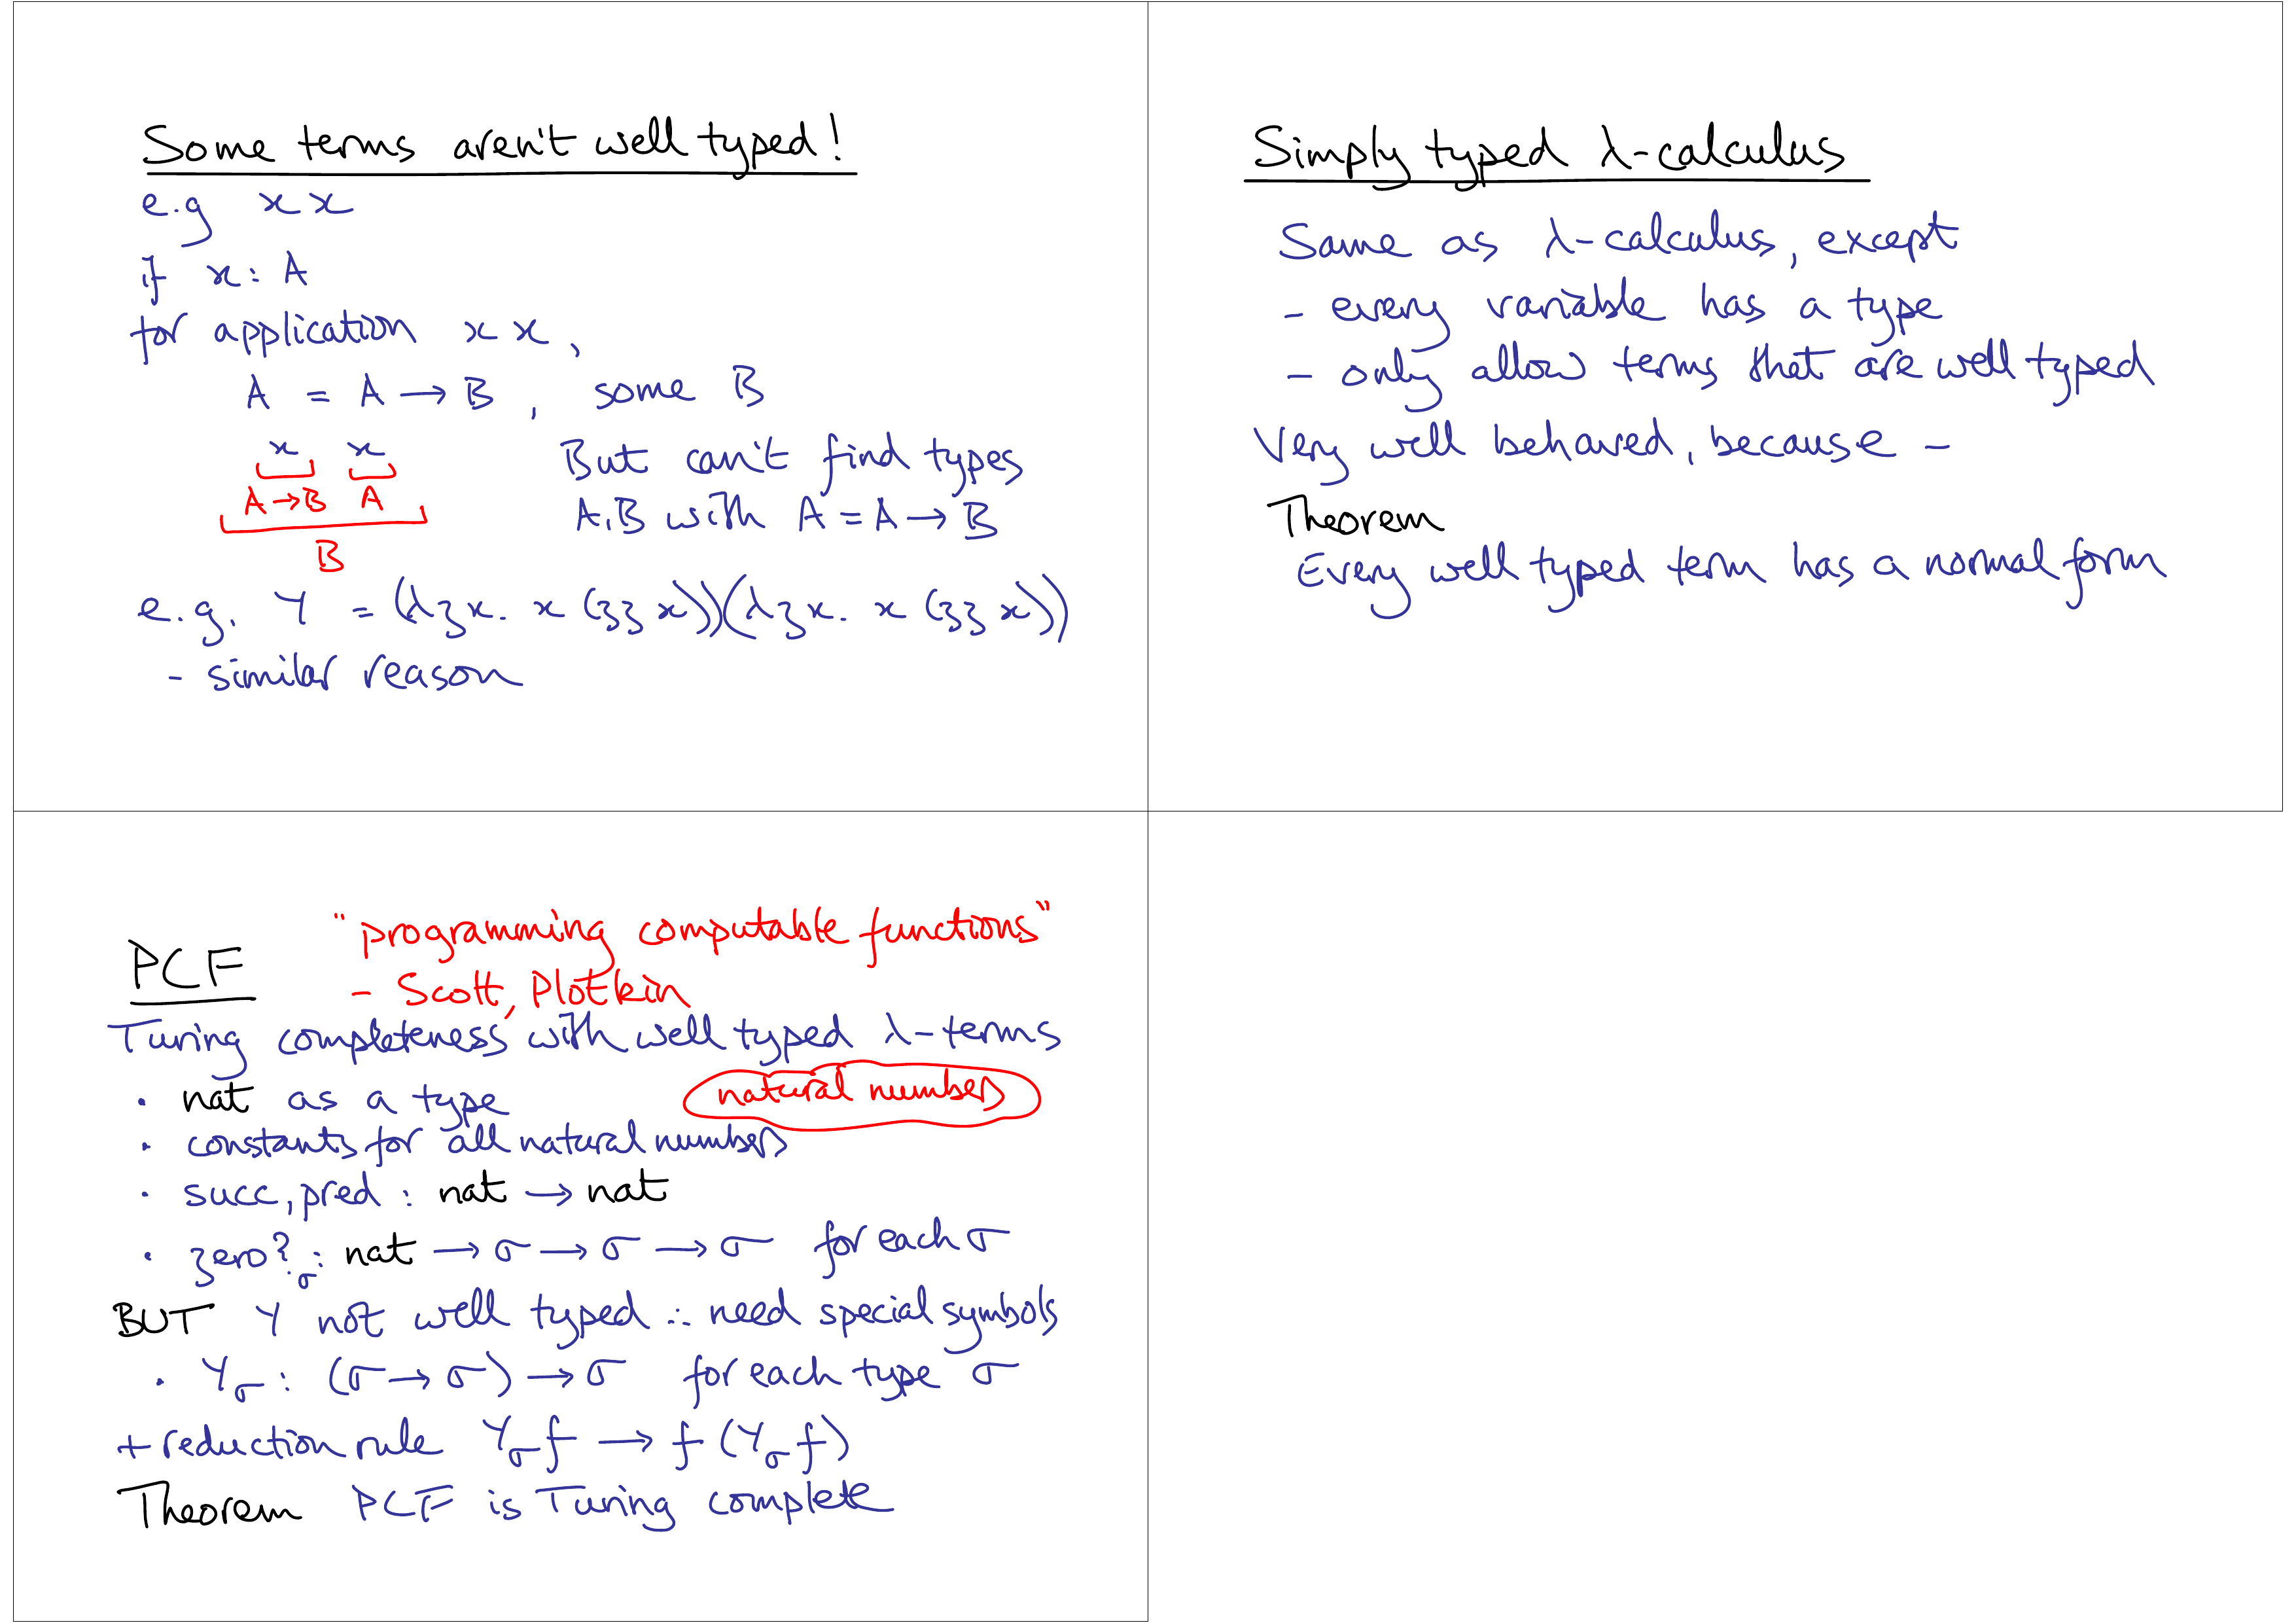 Some terms aren't well typed!
e.g xx
if x: A
for application x x,
A = A → B, some B
x x
A→B A
B
But can't find types
A, B with A = A → B
e.g. Y = (λzx. x (zz x))(λzx. x (zz x))
- similar reason
Simply typed λ-calculus
Same as λ-calculus, except
- every variable has a type
- only allow terms that are well typed
Very well behaved, because -
Theorem
Every well typed term has a normal form
PCF
"programming computable functions"
- Scott, Plotkin
Turing completeness with well typed λ-terms
• nat as a type
natural numbers
• constants for all natural numbers
• succ, pred : nat → nat
• zero?σ: nat → σ → σ → σ for each σ
BUT Y not well typed ∴ need special symbols
• Yσ: (σ → σ) → σ for each type σ
+ reduction rule Yσ f → f (Yσ f)
Theorem PCF is Turing complete